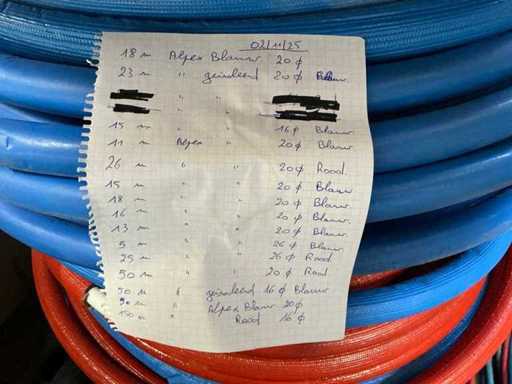 02/11/25
18 m Alpex Blauw 20 ϕ
23 m " geïsoleerd 20 ϕ Blauw
15 m " " 16 ϕ Blauw
11 m Alpex " 20 ϕ Blauw
26 m " " 20 ϕ Rood
15 m " " 20 ϕ Blauw
18 m " " 20 ϕ Blauw
16 m " " 20 ϕ Blauw
13 m " " 20 ϕ Blauw
5 m " " 26 ϕ Blauw
25 m " " 26 ϕ Rood
50 m " " 20 ϕ Rood
50 m " geïsoleerd 16 ϕ Blauw
m " Alpex Blauw 20 ϕ
m " Rood 16 ϕ